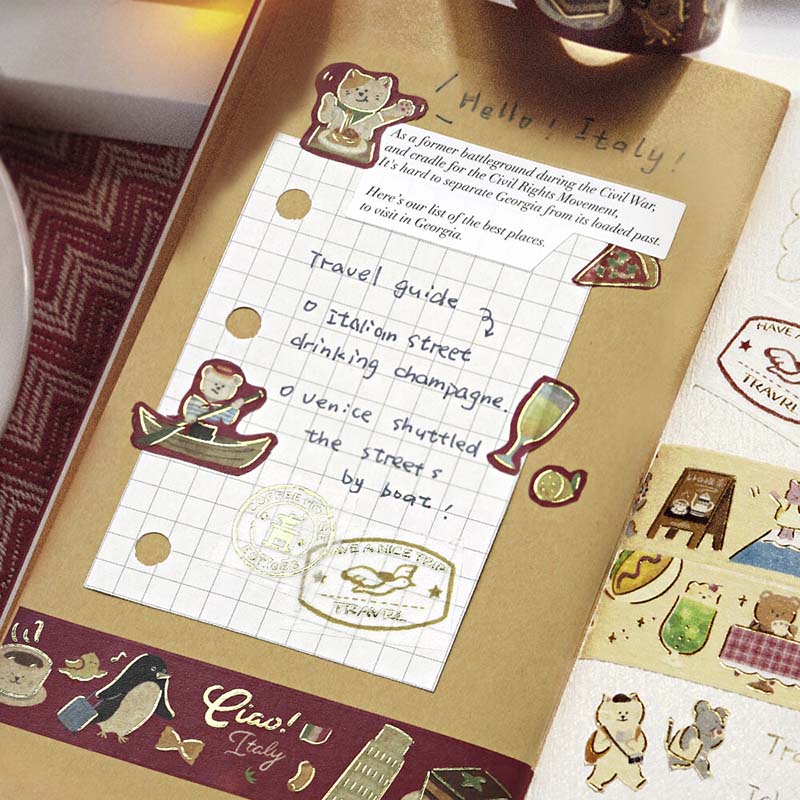 Hello! Italy!
As a former battleground during the Civil War,
and cradle for the Civil Rights Movement,
It's hard to separate Georgia from its loaded past.
Here's our list of the best places.
to visit in Georgia.
Travel guide
Italian street
drinking champagne.
venice shuttled
the streets
by boat!
COFFEE HOUSE
HAVE A NICE TRIP
TRAVEL
Ciao!
Italy
HAVE A
TRAVEL